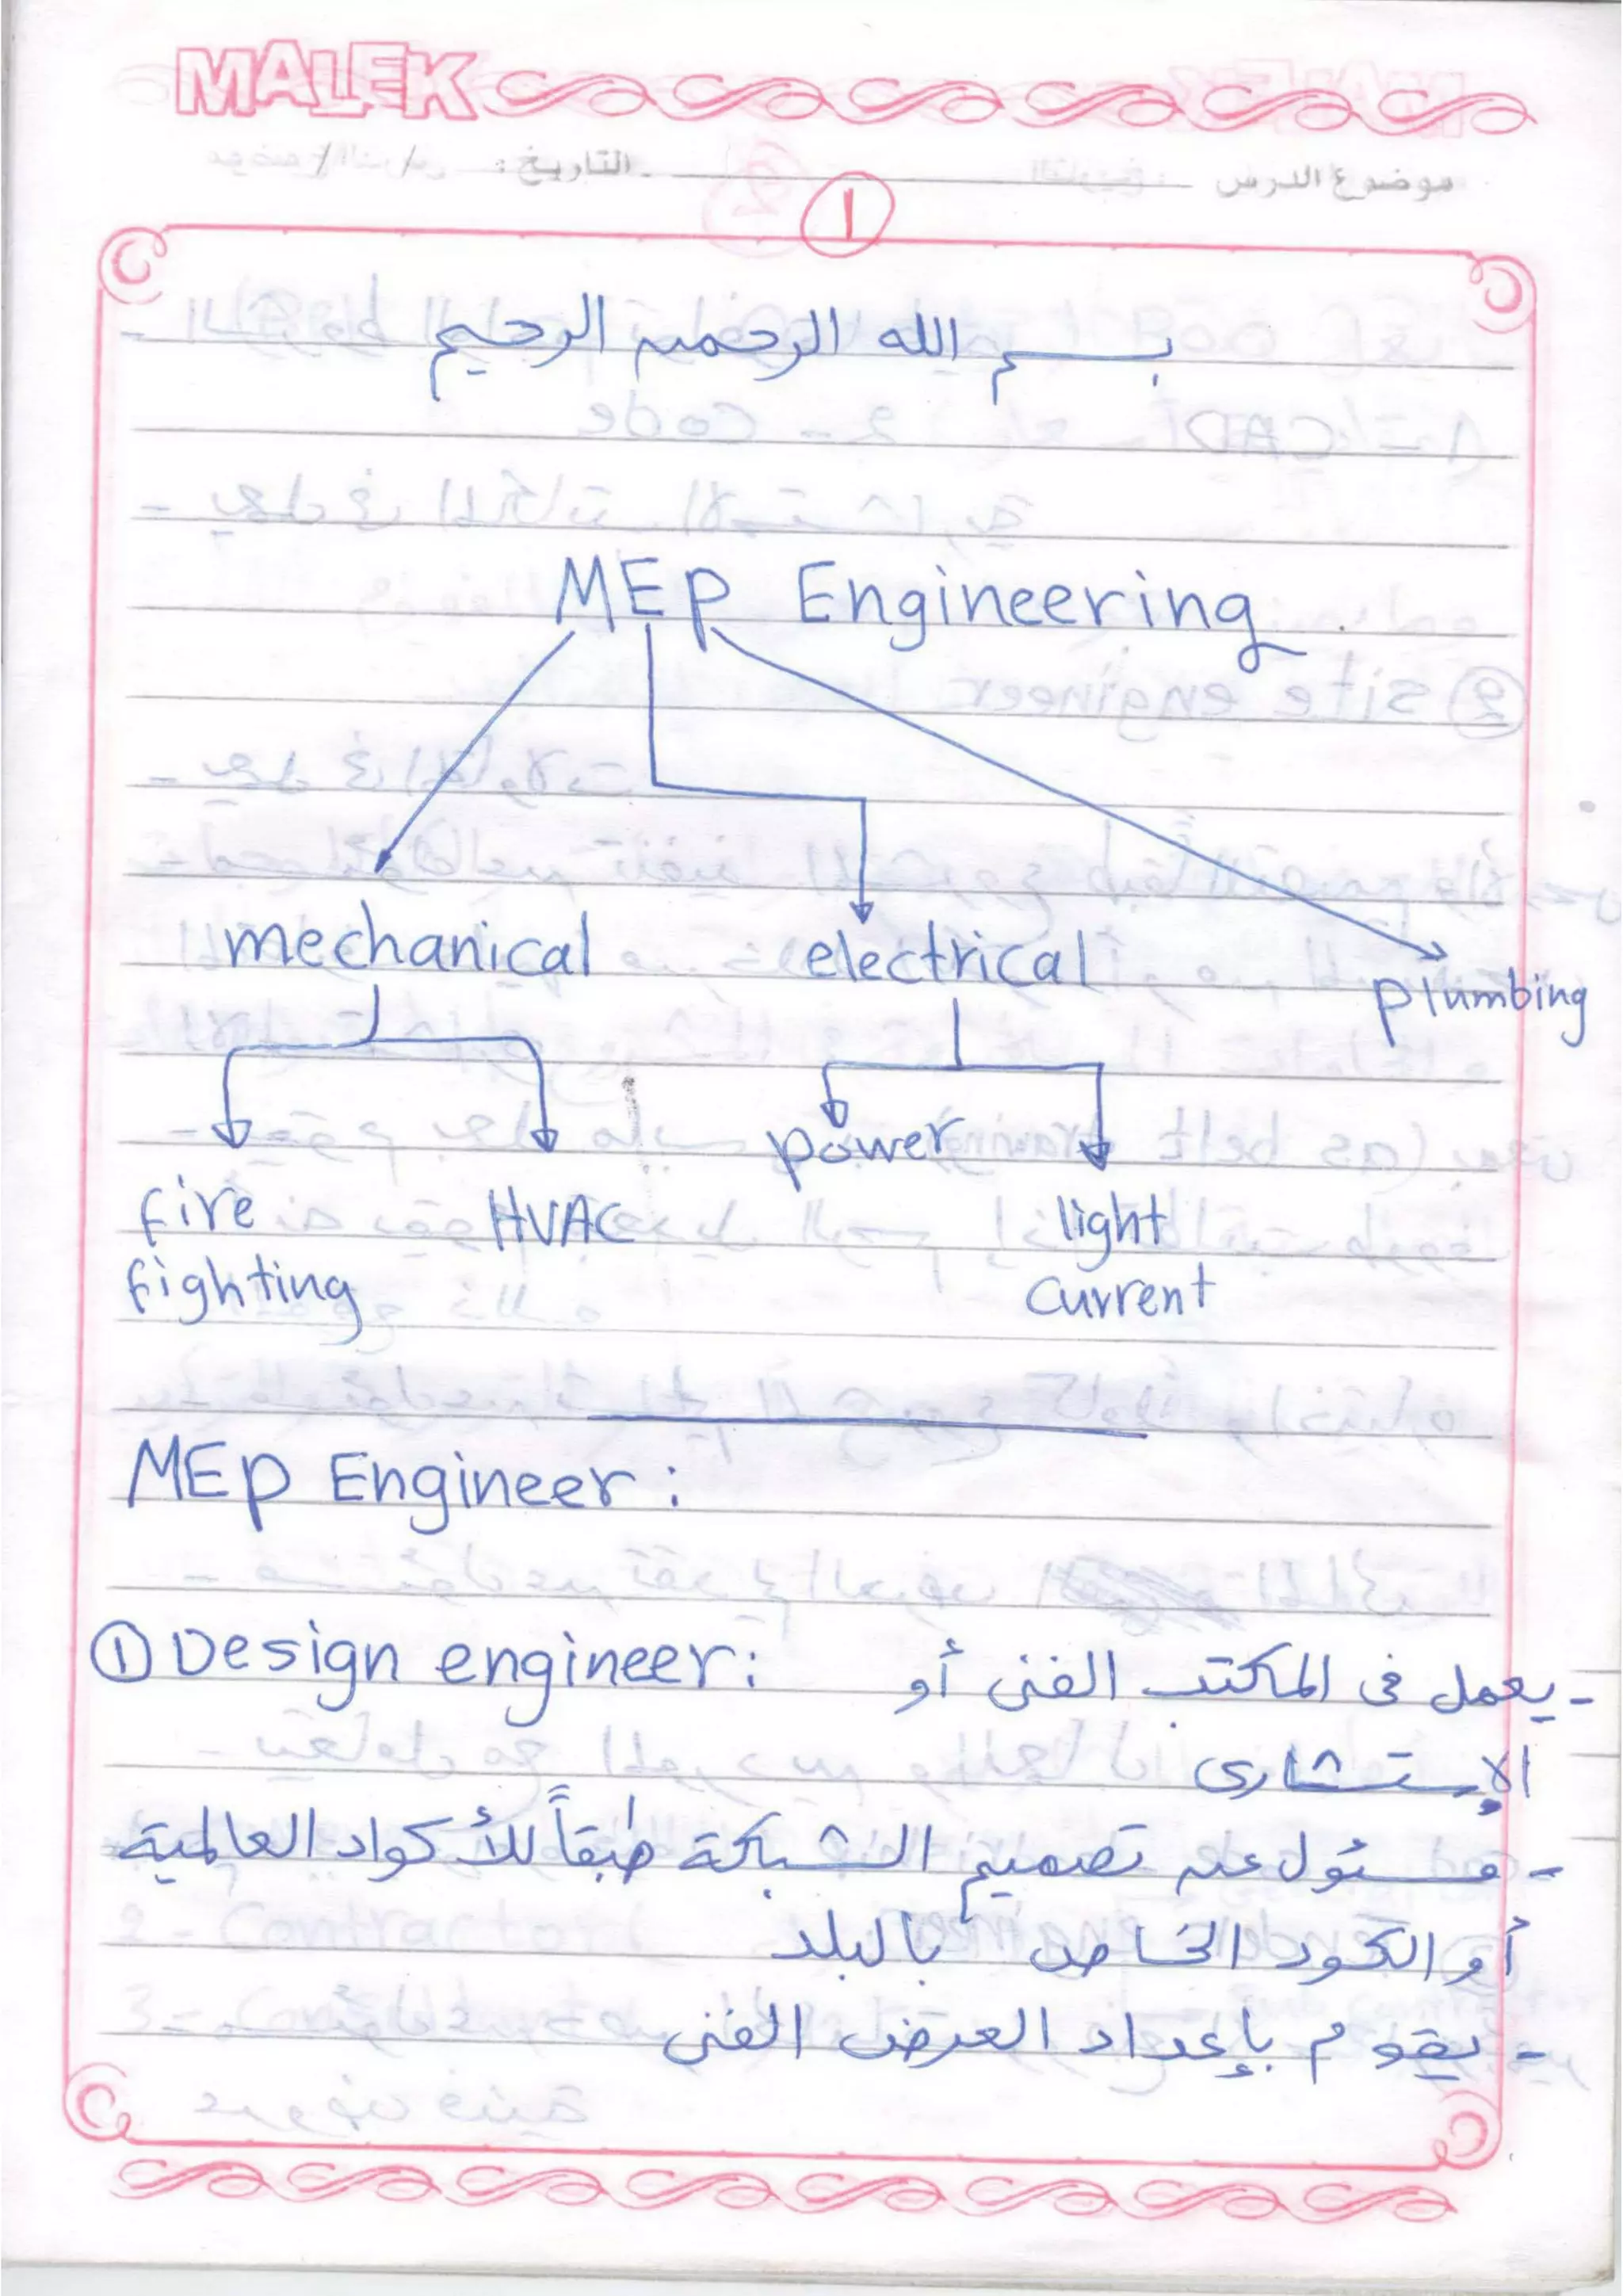 MALEK
موضوع الدرس
التاريخ : / /
1
بسم الله الرحمن الرحيم
MEP Engineering
mechanical electrical plumbing
fire fighting HVAC power light current
MEP Engineer :
① Design engineer : - يعمل فى المكتب الفنى أو
الإستشارى
- مسئول عن تصميم الشبكة طبقاً للأكواد العالمية
أو الكود الخاص بالبلد
- يقوم بإعداد العرض الفنى